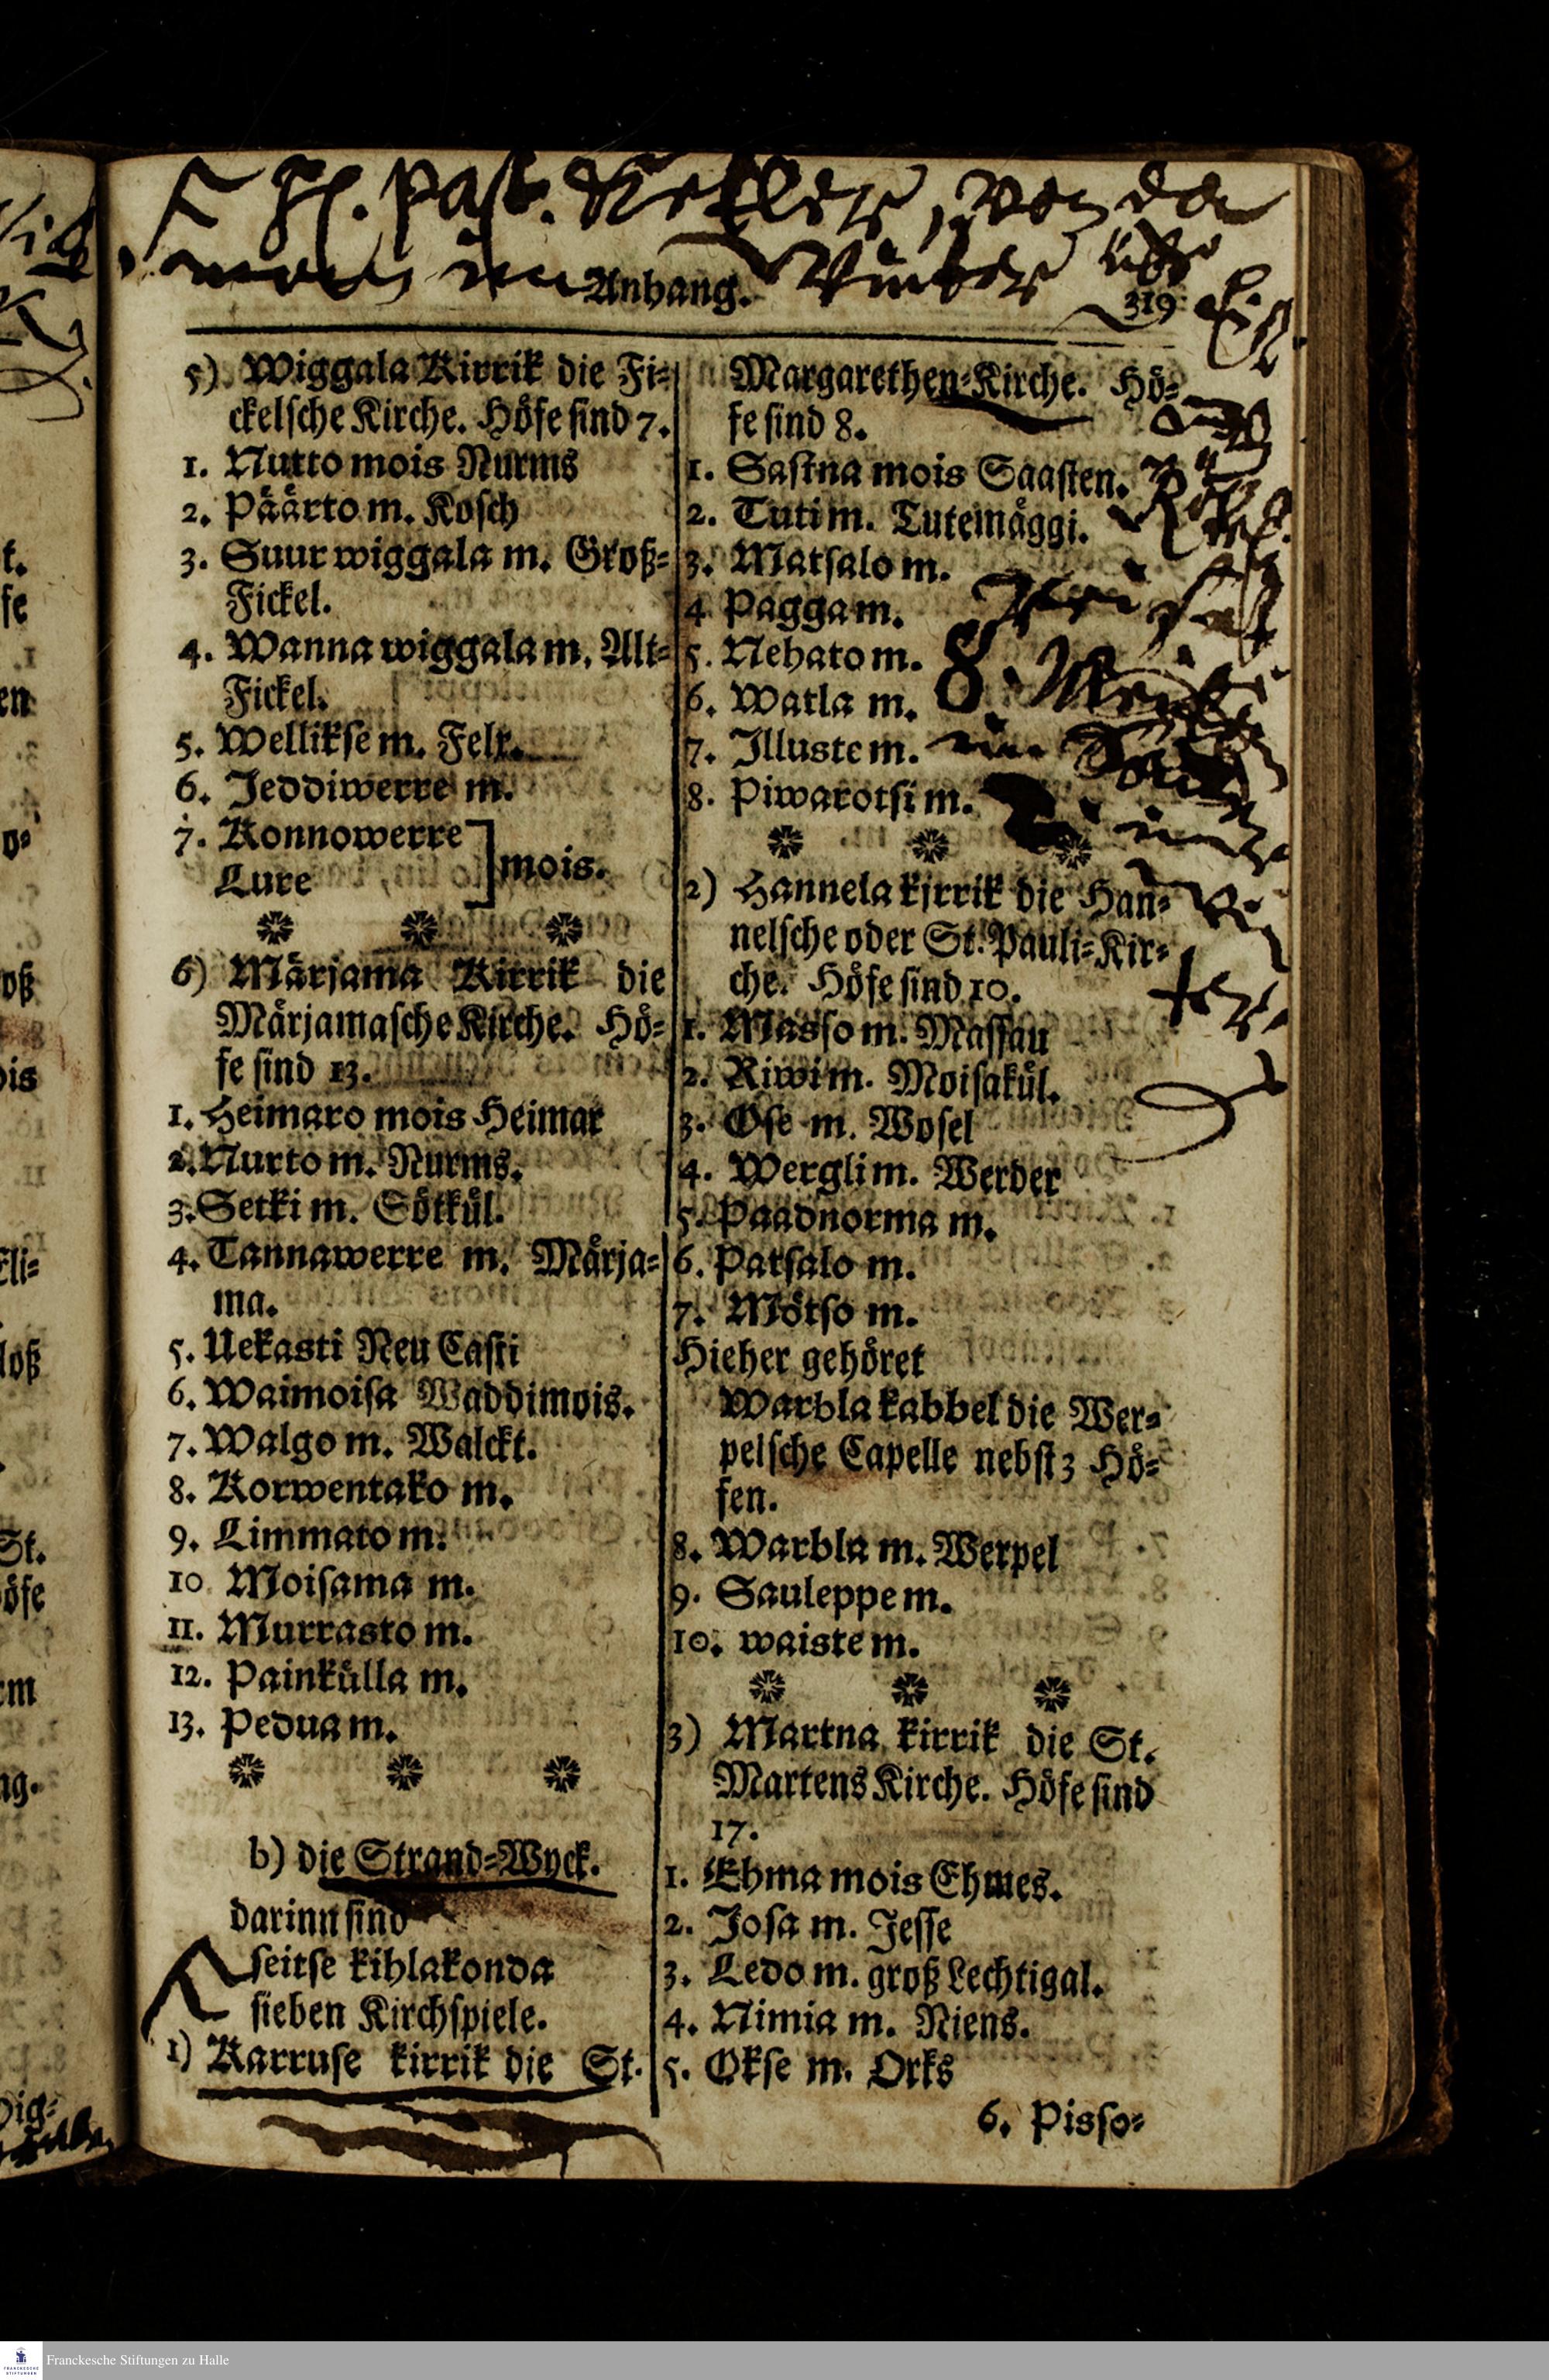 Anhang. 319
5) Wiggala Kirrik die Fi-
ckelsche Kirche. Höfe sind 7.
1. Nurto mois Nurms
2. Päärto m. Kosch
3. Suur wiggala m. Groß-
Fickel.
4. Wanna wiggala m. Alt-
Fickel.
5. Wellikse m. Felx.
6. Jeddiwerre m.
7. Konnowerre
Lure ] mois.
6) Märjama Kirrik die
Märjamasche Kirche. Hö-
fe sind 13.
1. Heimaro mois Heimar
2. Nurto m. Nurms.
3. Setki m. Sötkül.
4. Tannawerre m. Märja-
ma.
5. Uekasti Neu Casti
6. Waimoisa Waddimois.
7. Walgo m. Walckt.
8. Korwentako m.
9. Limmato m.
10 Moisama m.
11. Murrasto m.
12. Painkülla m.
13. Pedua m.
b) die Strand-Wyck.
darinn sind
seitse kihlakonda
sieben Kirchspiele.
1) Karruse kirrik die St.
Margarethen-Kirche. Hö-
fe sind 8.
1. Sastna mois Saasten.
2. Tuti m. Tutemäggi.
3. Matsalo m.
4 Pagga m.
5. Nehato m.
6. Watla m.
7. Illuste m.
8. Piwarotsi m.
2) Hannela kirrik die Han-
nelsche oder St. Pauli-Kir-
che. Höfe sind 10.
1. Masso m. Massau
2. Riwi m. Moisakül.
3. Ose m. Wosel
4. Wergli m. Werder
5. Paadnorma m.
6. Patsalo m.
7. Mötso m.
Hieher gehöret
Warbla kabbel die Wer-
pelsche Capelle nebst 3 Hö-
fen.
8. Warbla m. Werpel
9. Sauleppe m.
10. waiste m.
3) Martna kirrik die St.
Martens Kirche. Höfe sind
17.
1. Ehma mois Ehmes.
2. Josa m. Jesse
3. Ledo m. groß Lechtigal.
4. Nimia m. Niens.
5. Okse m. Orks
6. Pisso-
Franckesche Stiftungen zu Halle